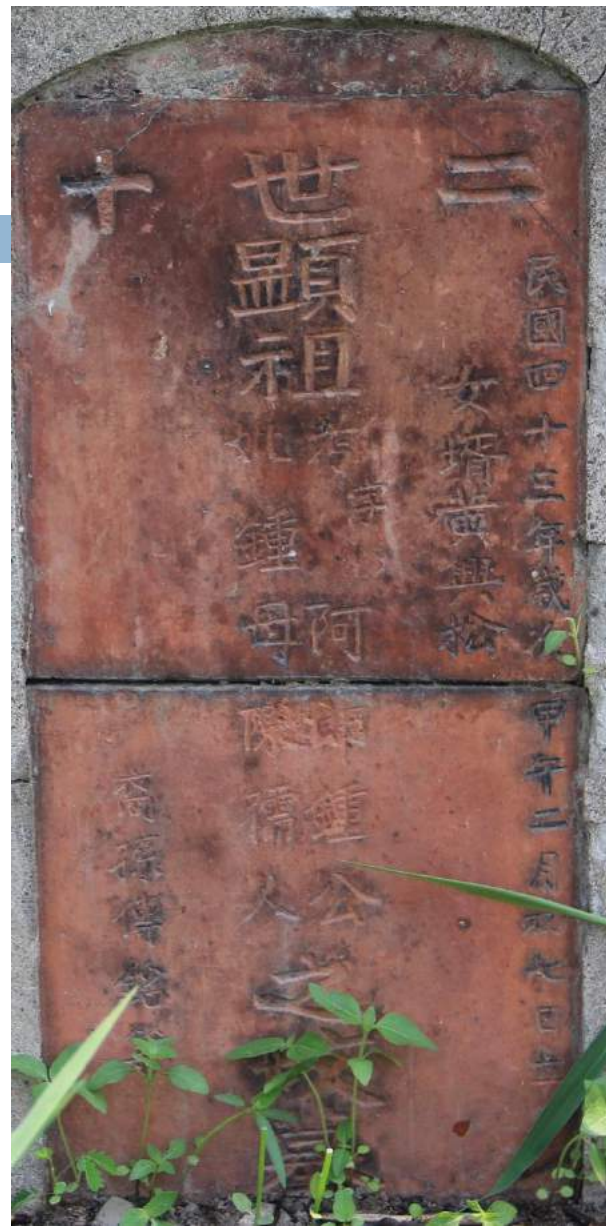 二
民國四十三年歲次甲午二月初七日立
女婿黃興松
世顯祖
考字阿鍾公
妣鍾母陳孺人
之
十
裔孫傳